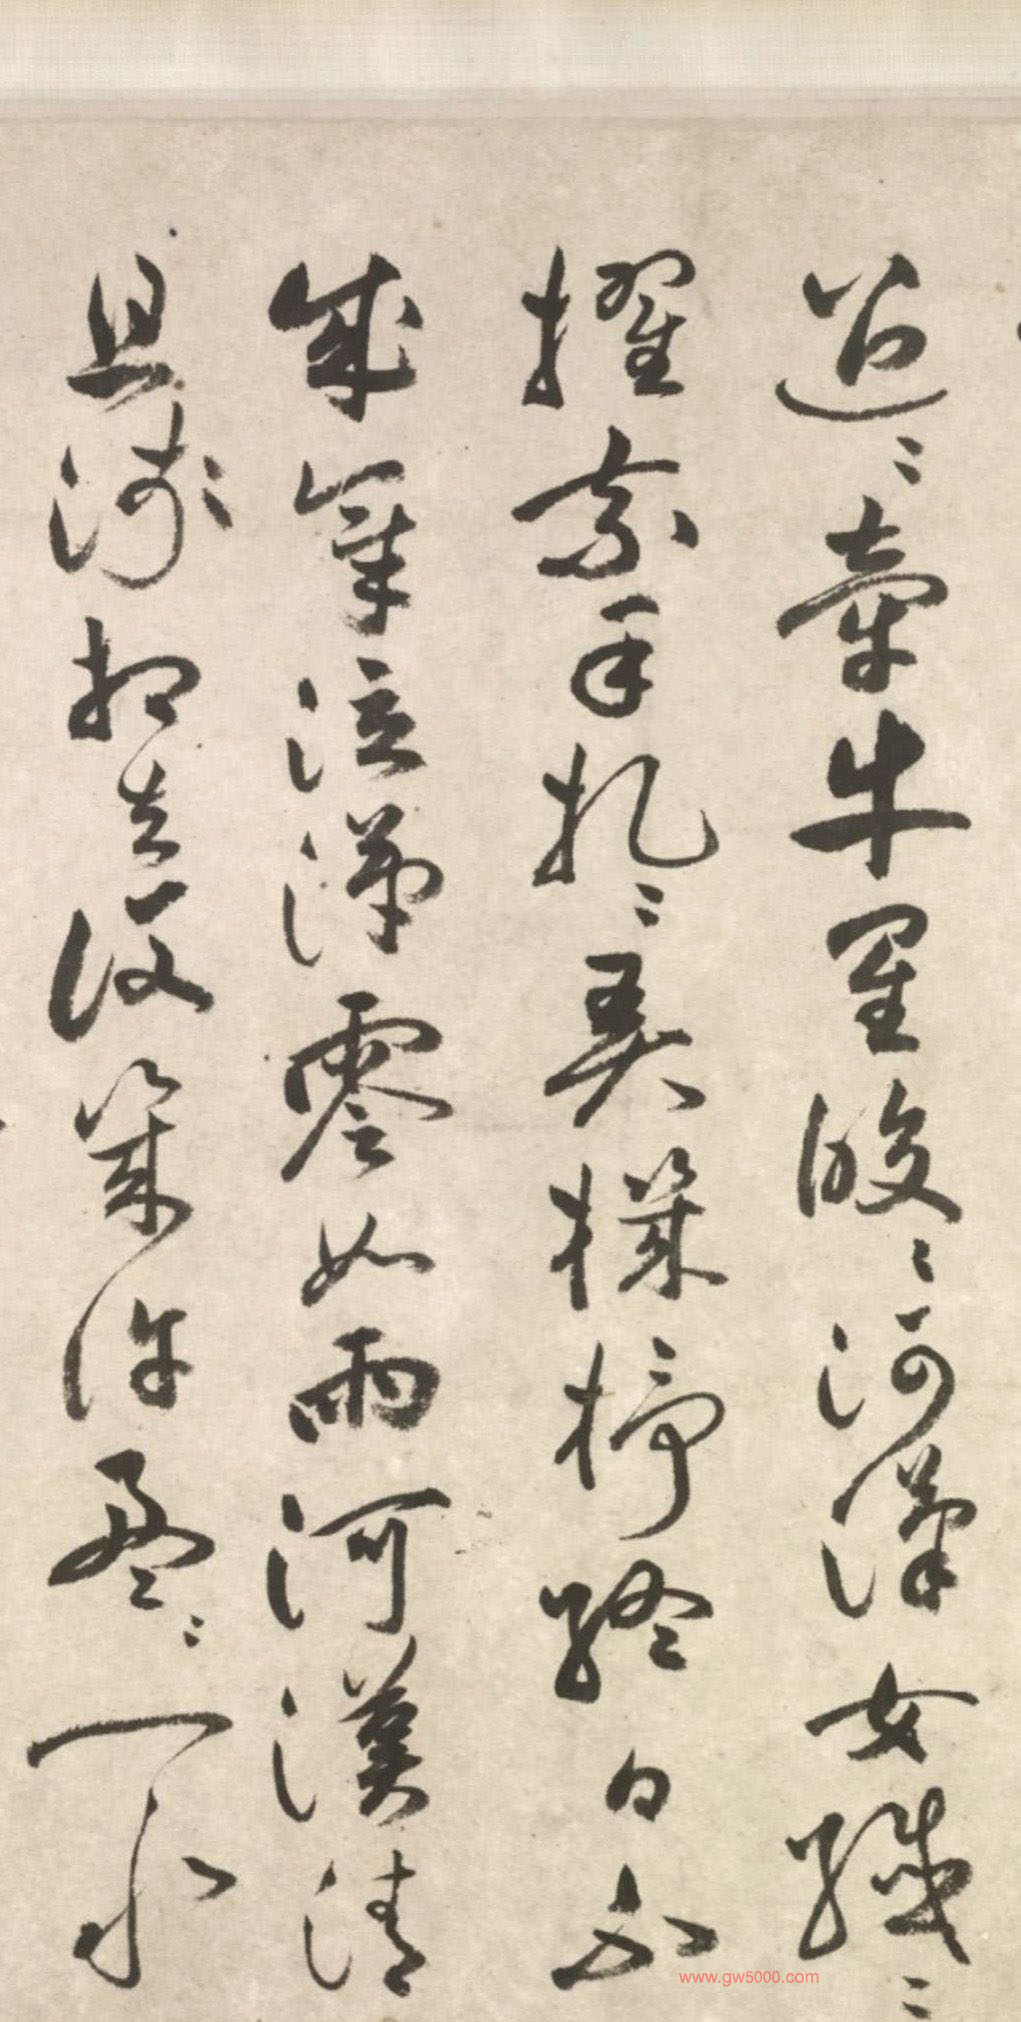 迢〻牽牛星皎〻河漢女纖〻
擢素手札〻弄機杼終日不
成章泣涕零如雨河漢清
且淺相去復幾許盈〻一水
www.gw5000.com